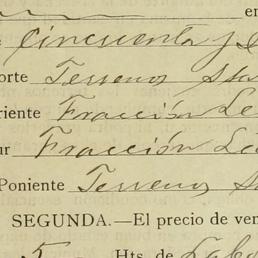 en
Cincuenta y
orte Terrenos
riente Fracción
ur Fracción
Poniente Terreno
SEGUNDA.—El precio de ven
5 Hts. de Labo